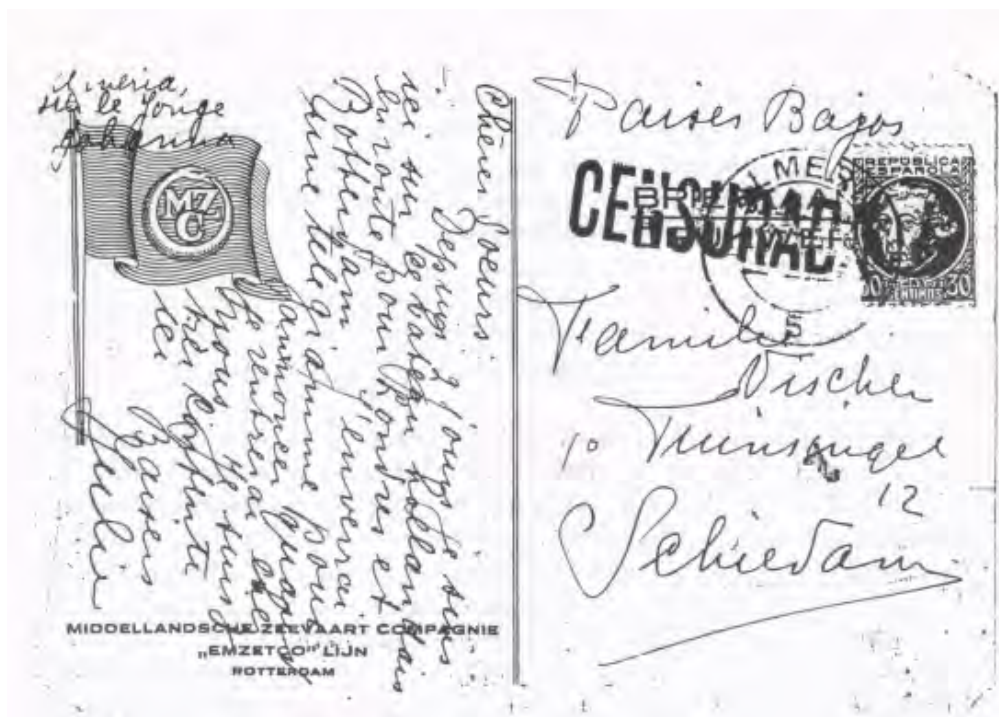 Almeria,
sur le Jonge
Johanna
MZ
C
Chères Soeurs.
Depuis 2 jours je suis
ici sur ce bateau hollandais
en route pour Londres et
Rotterdam J'enverrai
une télégramme pour
annoncer quand
je rentrerai chez
vous. Je suis
très contente
ici
Baisers
MIDDELLANDSCHE ZEEVAART COMPAGNIE
„EMZETCO" LIJN
ROTTERDAM
Paises Bajos
CENSURADA
REPUBLICA
ESPAÑOLA
30 CENTIMOS 30
5
Familie
Vischer
12
Schiedam